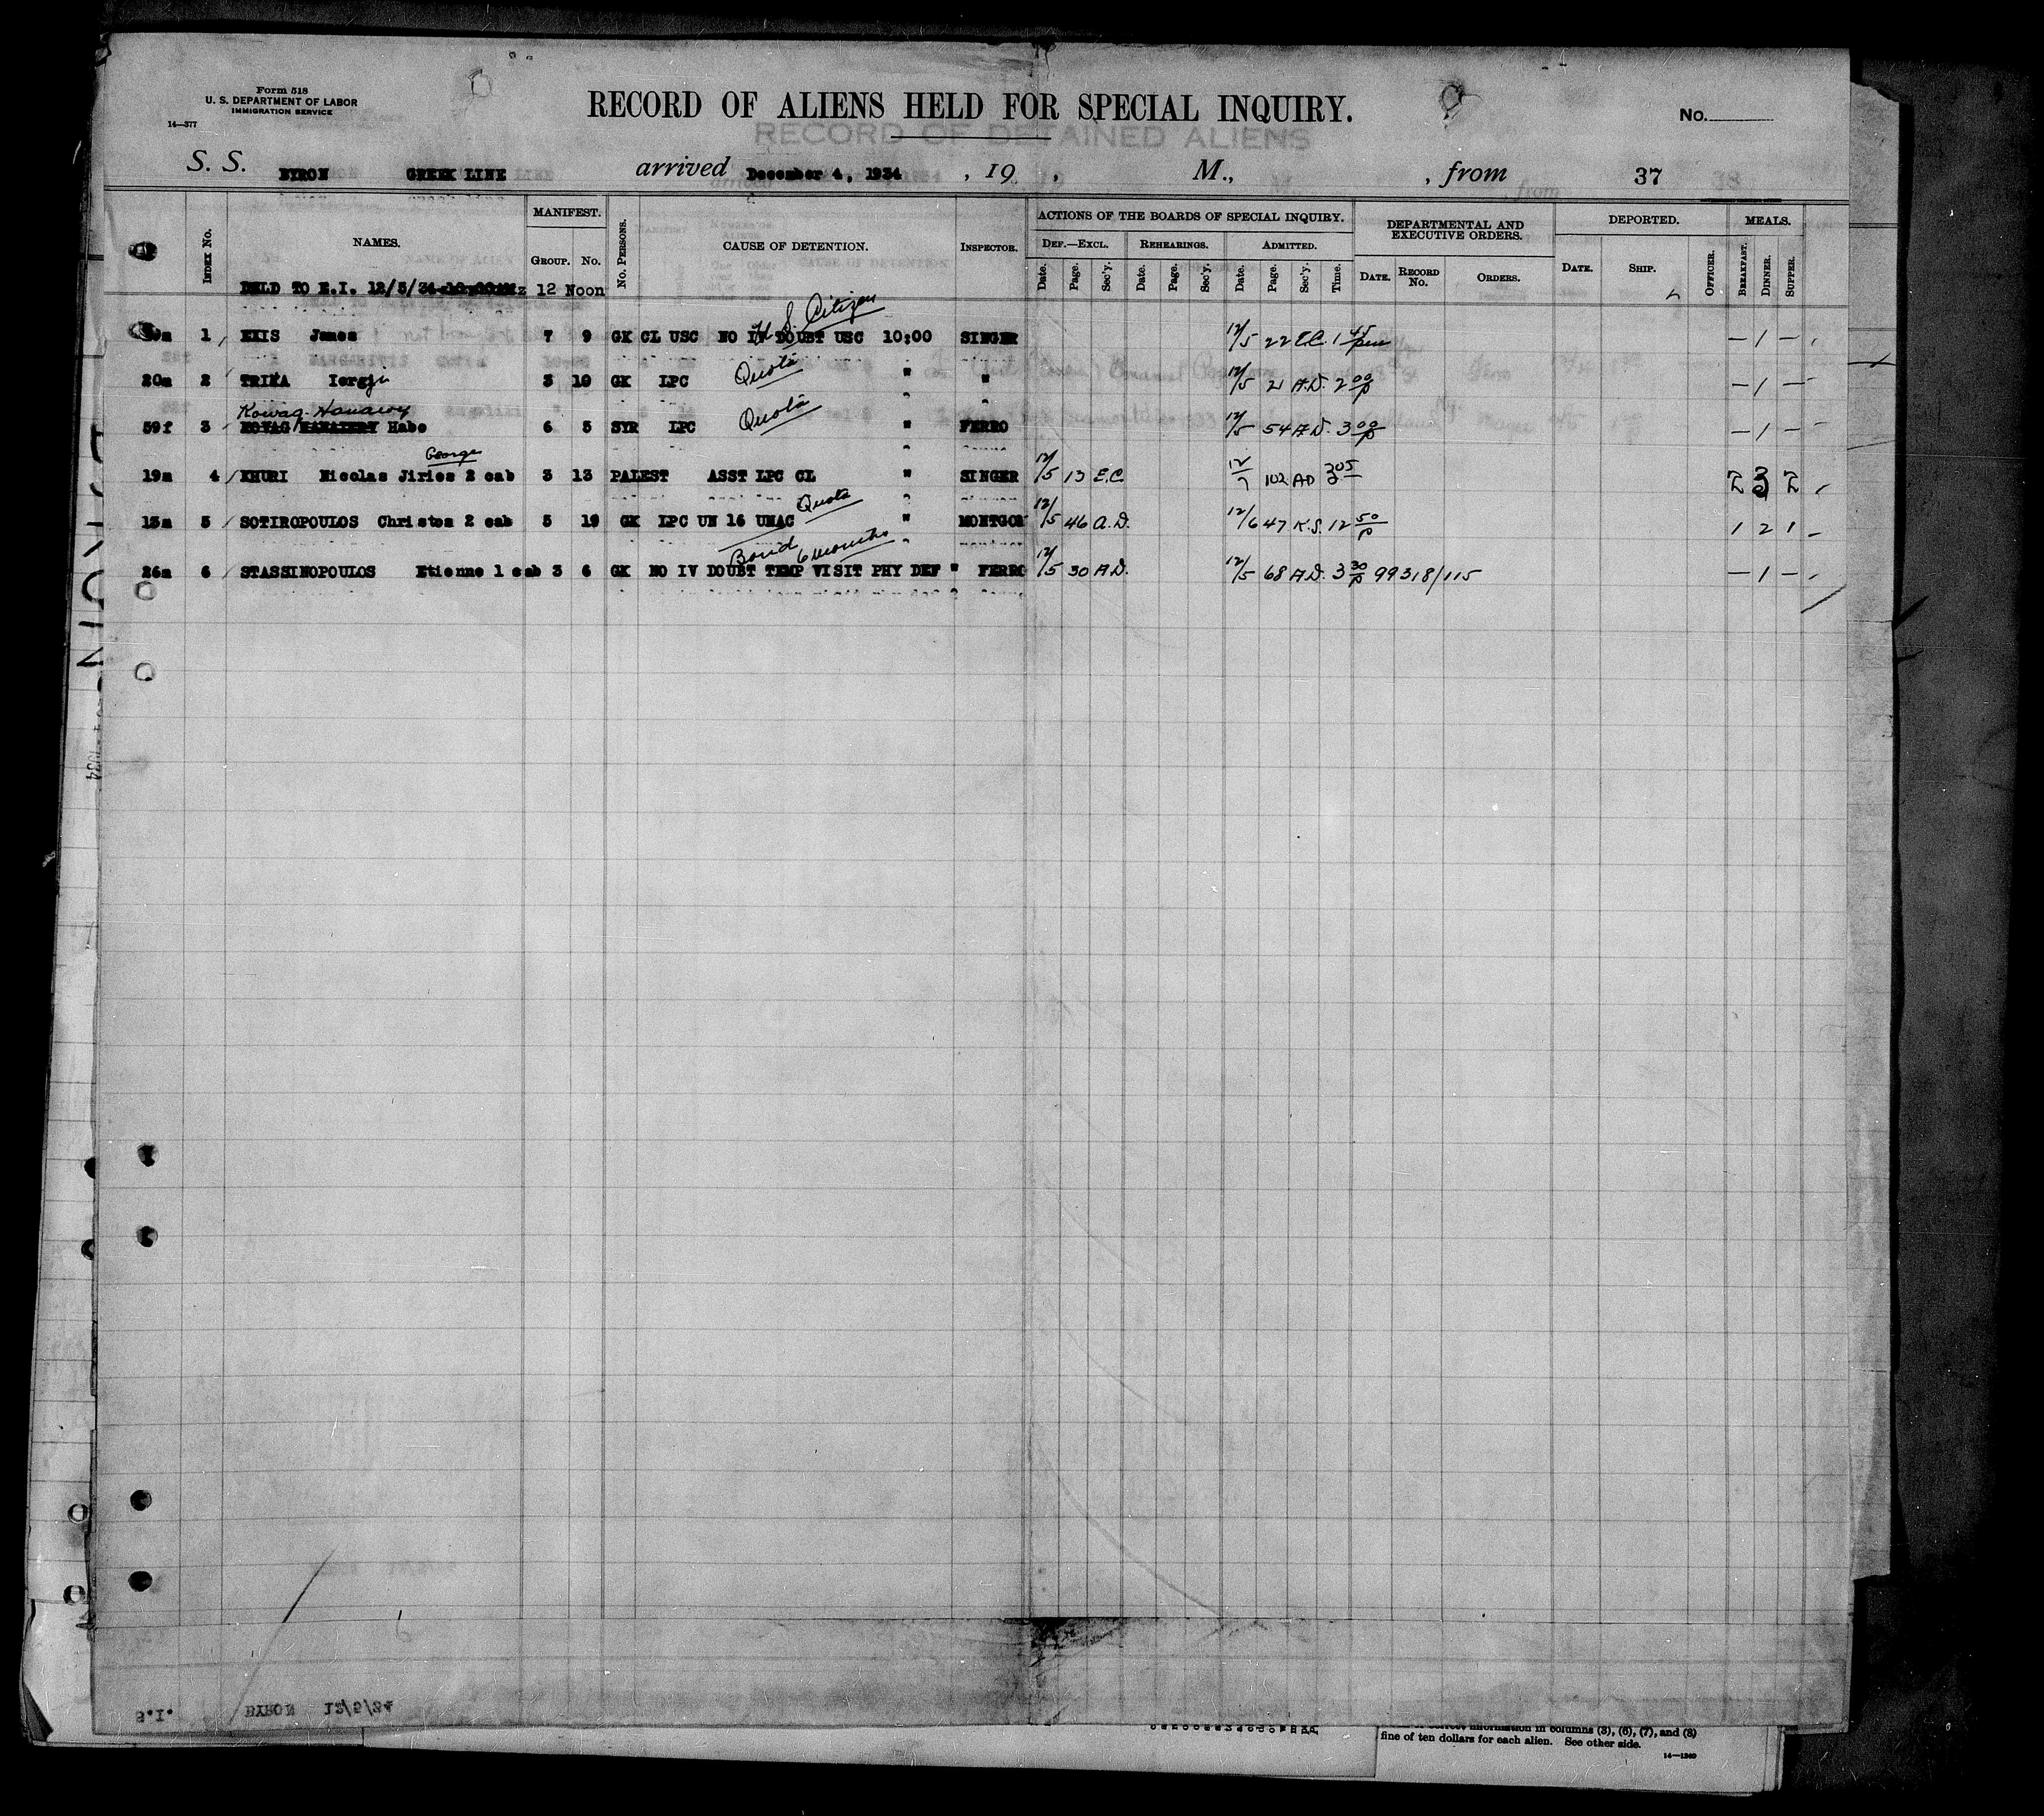 Form 518
U. S. DEPARTMENT OF LABOR
IMMIGRATION SERVICE
14—377
RECORD OF ALIENS HELD FOR SPECIAL INQUIRY.
RECORD OF DETAINED ALIENS
No.
S. S. BYRON GREEK LINE arrived December 4, 1934 , 19 , M., , from 37
INDEX No. NAMES. MANIFEST. GROUP. No. No. PERSONS. CAUSE OF DETENTION. INSPECTOR. ACTIONS OF THE BOARDS OF SPECIAL INQUIRY. DEF.—EXCL. Date. Page. Sec'y. REHEARINGS. Date. Page. Sec'y. ADMITTED. Date. Page. Sec'y. Time. DEPARTMENTAL AND EXECUTIVE ORDERS. DATE. RECORD No. ORDERS. DEPORTED. DATE. SHIP. OFFICER. MEALS. BREAKFAST. DINNER. SUPPER.
HELD TO E.I. 12/5/34 12 Noon
U. S. Citizen
1 EXIS James 7 9 GK CL USC NO IV DOUBT USC 10:00 SINGER 12/5 22 E.C. 1 45 pm — 1 —
Quota
20m 2 TRIKA Iergji 3 10 GK LPC " " 12/5 21 A.D. 2 00 p — 1 —
Kowag Hanawy Quota
59f 3 KOWAG Habe 6 5 SYR LPC " FERRO 12/5 54 A.D. 3 00 p — 1 —
George
19m 4 KHURI Nicolas Jiries 2 cab 3 13 PALEST ASST LPC CL " SINGER 12/5 13 E.C. 12/7 102 AD 3 05 2 3 2
Quota
13m 5 SOTIROPOULOS Christos 2 cab 5 19 GK LPC UN 16 UNAC " MONTGOM 12/5 46 A.D. 12/6 47 K.S. 12 50 p 1 2 1
Bond 6 months
26m 6 STASSINOPOULOS Etienne 1 cab 3 6 GK NO IV DOUBT TEMP VISIT PHY DEF " FERRO 12/5 30 A.D. 12/5 68 A.D. 3 30 p 99318/115 — 1 —
S.I. BYRON 12/5/34
information in columns (3), (6), (7), and (8)
fine of ten dollars for each alien. See other side.
14—1240